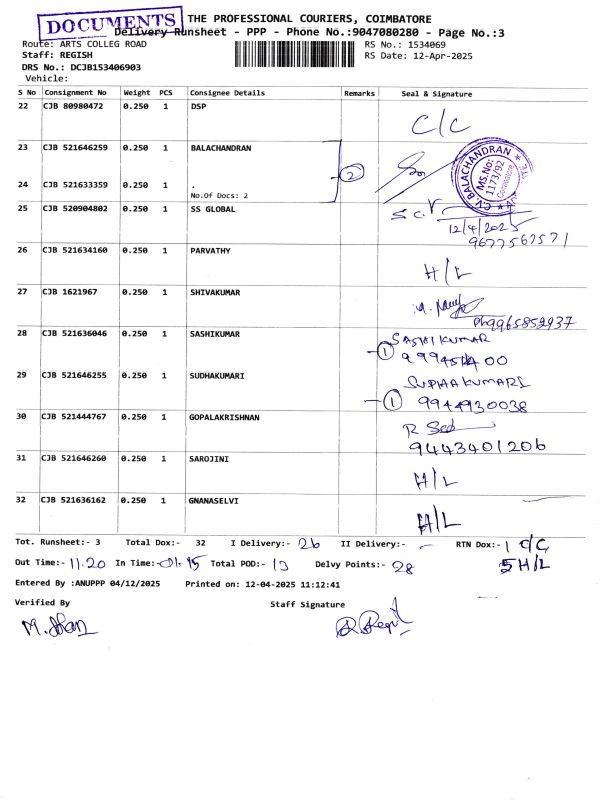 DOCUMENTS
THE PROFESSIONAL COURIERS, COIMBATORE
Delivery Runsheet - PPP - Phone No.:9047080280 - Page No.:3
Route: ARTS COLLEG ROAD
RS No.: 1534069
Staff: REGISH
RS Date: 12-Apr-2025
DRS No.: DCJB153406903
Vehicle:
S No Consignment No Weight PCS Consignee Details Remarks Seal & Signature
22 CJB 80980472 0.250 1 DSP C/C
23 CJB 521646259 0.250 1 BALACHANDRAN
2
CV. BALACHANDRAN
MS.No: 1173/92
Coimbatore
24 CJB 521633359 0.250 1 .
No.Of Docs: 2
25 CJB 520904802 0.250 1 SS GLOBAL
12/4/2025
9677567571
26 CJB 521634160 0.250 1 PARVATHY H/L
27 CJB 1621967 0.250 1 SHIVAKUMAR
Ph9965852937
28 CJB 521636046 0.250 1 SASHIKUMAR SASHIKUMAR
1
29 CJB 521646255 0.250 1 SUDHAKUMARI SUDHAKUMARI
1 9944930038
30 CJB 521444767 0.250 1 GOPALAKRISHNAN
9443401206
31 CJB 521646260 0.250 1 SAROJINI H/L
32 CJB 521636162 0.250 1 GNANASELVI H/L
Tot. Runsheet:- 3 Total Dox:- 32 I Delivery:- 26 II Delivery:- - RTN Dox:- 1 C/C
Out Time:- 11.20 In Time:- Total POD:- 13 Delvy Points:- 28 5 H/L
Entered By :ANUPPP 04/12/2025 Printed on: 12-04-2025 11:12:41
Verified By Staff Signature